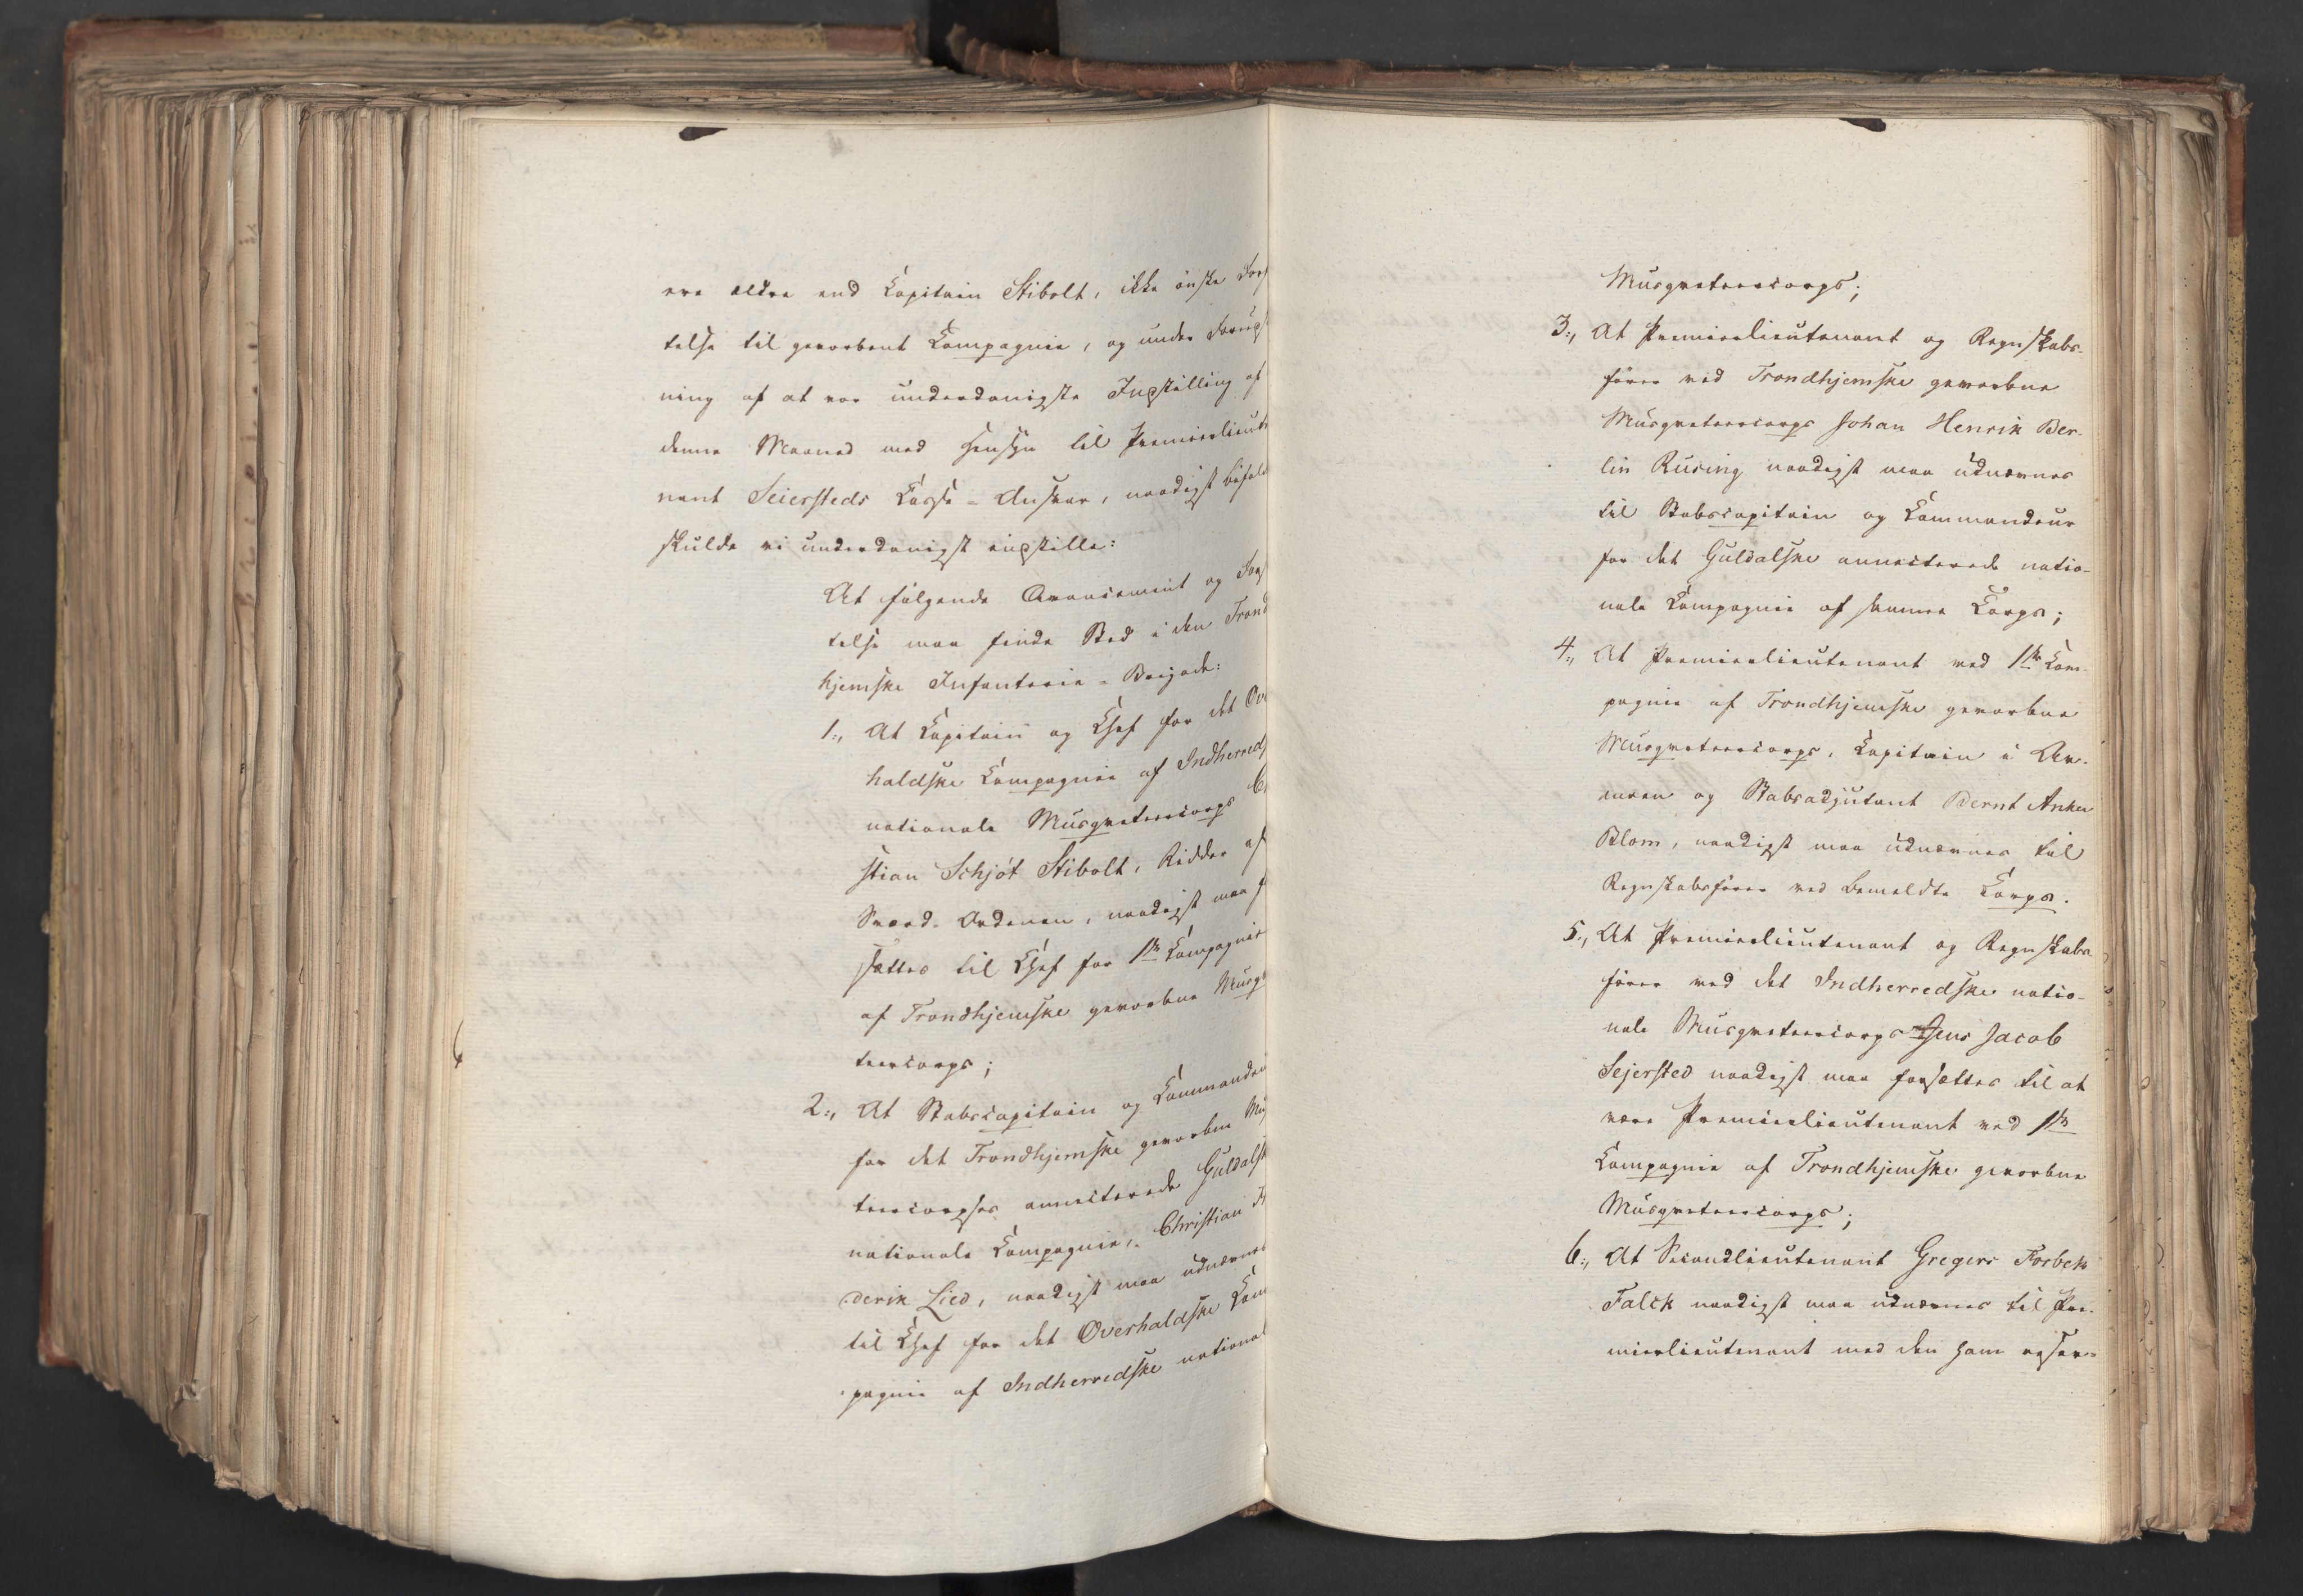 ere ældre end Capitain Stibolt, ikke önske For
telse til gevorbent Compagnie, og under Forud
ning af at vor underdanigste Indstilling af
denne Maaned med Hensyn til Premierlieut
nant Seiersteds Casse-Ansvar, naadigst bifald
skulde vi underdanigst indstille:
At følgende Avancement og For
telse maa finde Sted i den Trond
hjemske Infanterie-Brigade:
1., At Capitain og Chef for det Ov
haldske Compagnie af Indherreds
nationale Musqveteercorps
stian Schjöt Stibolt, Ridder af
Sværd-Ordenen, naadigst maa f
sættes til Chef for 1ste Compagnie
af Trondhjemske gevorbne Musqv
teercorps;
2., At Stabscapitain og Commandeu
for det Trondhjemske gevorbne Mus
teercorpses annecterede Guldalsk
nationale Compagnie, Christian Fr
derik Lied, naadigst maa udnævnes
til Chef for det Overhaldske Com
pagnie af Indherredske national
Musqveteercorps;
3., At Premierlieutenant og Regnskabs-
fører ved Trondhjemske gevorbne
Musqveteercorps Johan Henrik Ber-
lin Rusing naadigst maa udnævnes
til Stabscapitain og Commandeur
for det Guldalske annecterede natio-
nale Compagnie af samme Corps;
4., At Premierlieutenant ved 1ste Com-
pagnie af Trondhjemske gevorbne
Musqveteercorps, Capitain i Ar-
meen og Stabsadjutant Bernt Anker
Blom, naadigst maa udnævnes til
Regnskabsfører ved bemeldte Corps.
5., At Premierlieutenant og Regnskabs-
fører ved det Indherredske natio-
nale Musqveteercorps Jens Jacob
Sejersted naadigst maa forsættes til at
være Premierlieutenant ved 1ste
Compagnie af Trondhjemske gevorbne
Musqveteercorps;
6., At Secondlieutenant Gregers Forbek
Falck naadigst maa udnævnes til Pre-
mierlieutenant med den ham